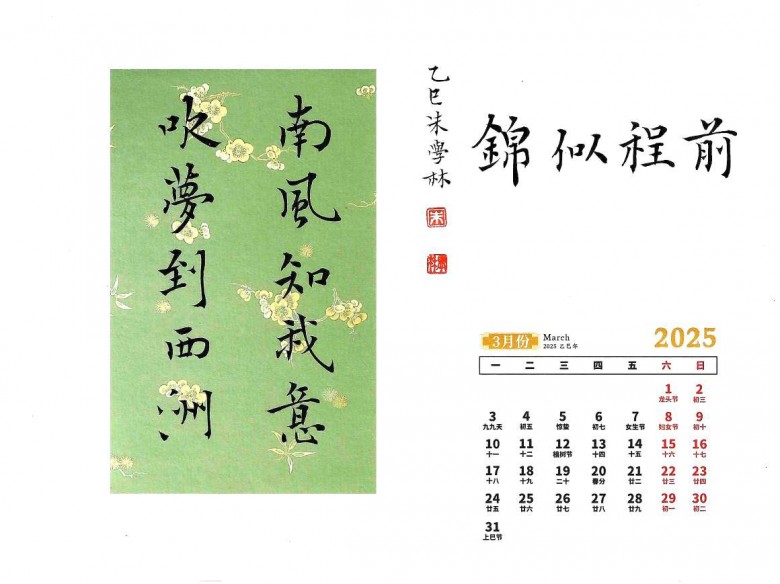 南風知我意
吹夢到西洲
前程似錦
乙巳朱學林
朱
3月份
March
2025 乙巳年
2025
一 二 三 四 五 六 日
1 2
龙头节 初三
3 4 5 6 7 8 9
九九天 初五 惊蛰 初七 女生节 妇女节 初十
10 11 12 13 14 15 16
十一 十二 植树节 十四 十五 十六 十七
17 18 19 20 21 22 23
十八 十九 二十 春分 廿二 廿三 廿四
24 25 26 27 28 29 30
廿五 廿六 廿七 廿八 廿九 初一 初二
31
上巳节